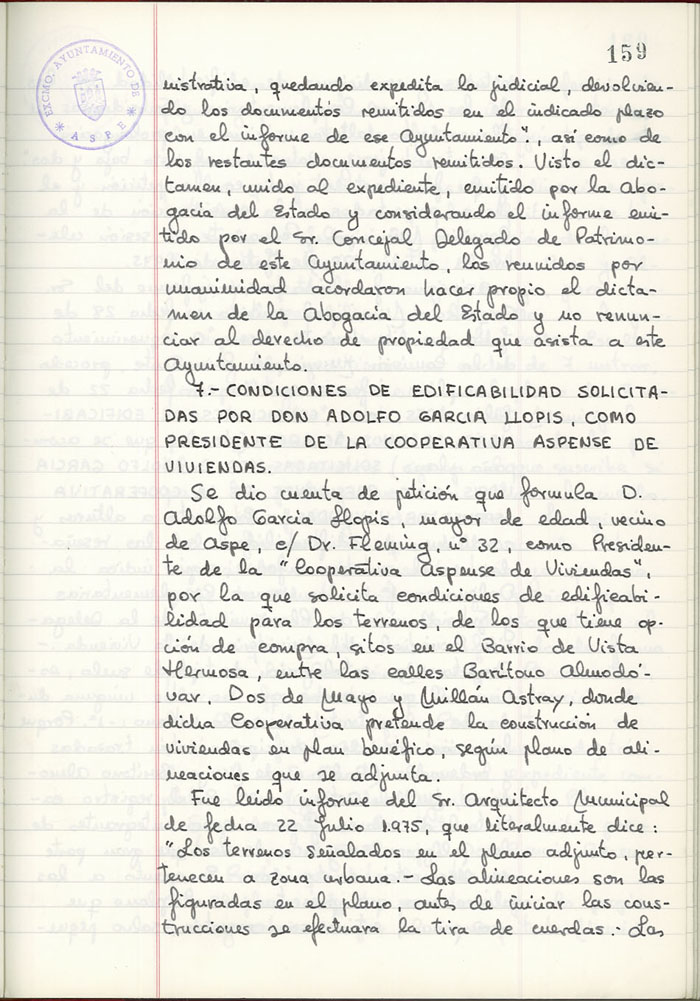 159
EXCMO. AYUNTAMIENTO DE
* ASPE *
nistrativa, quedando expedita la judicial, devolvien-
do los documentos remitidos en el indicado plazo
con el informe de ese Ayuntamiento"., así como de
los restantes documentos remitidos. Visto el dic-
tamen, unido al expediente, emitido por la Abo-
gacía del Estado y considerando el informe emi-
tido por el Sr. Concejal Delegado de Patrimo-
nio de este Ayuntamiento, los reunidos por
unanimidad acordaron hacer propio el dicta-
men de la Abogacía del Estado y no renun-
ciar al derecho de propiedad que asista a este
Ayuntamiento.
7.- CONDICIONES DE EDIFICABILIDAD SOLICITA-
DAS POR DON ADOLFO GARCIA LLOPIS, COMO
PRESIDENTE DE LA COOPERATIVA ASPENSE DE
VIVIENDAS.
Se dio cuenta de petición que formula D.
Adolfo García Llopis, mayor de edad, vecino
de Aspe, c/ Dr. Fleming, nº 32, como Presiden-
te de la "Cooperativa Aspense de Viviendas",
por la que solicita condiciones de edificabi-
lidad para los terrenos, de los que tiene op-
ción de compra, sitos en el Barrio de Vista
Hermosa, entre las calles Barítono Almodó-
var, Dos de Mayo y Millán Astray, donde
dicha Cooperativa pretende la construcción de
viviendas en plan benéfico, según plano de ali-
neaciones que se adjunta.
Fue leído informe del Sr. Arquitecto Municipal
de fecha 22 Julio 1.975, que literalmente dice:
"Los terrenos señalados en el plano adjunto, per-
tenecen a zona urbana.- Las alineaciones son las
figuradas en el plano, antes de iniciar las cons-
trucciones se efectuará la tira de cuerdas.- Las